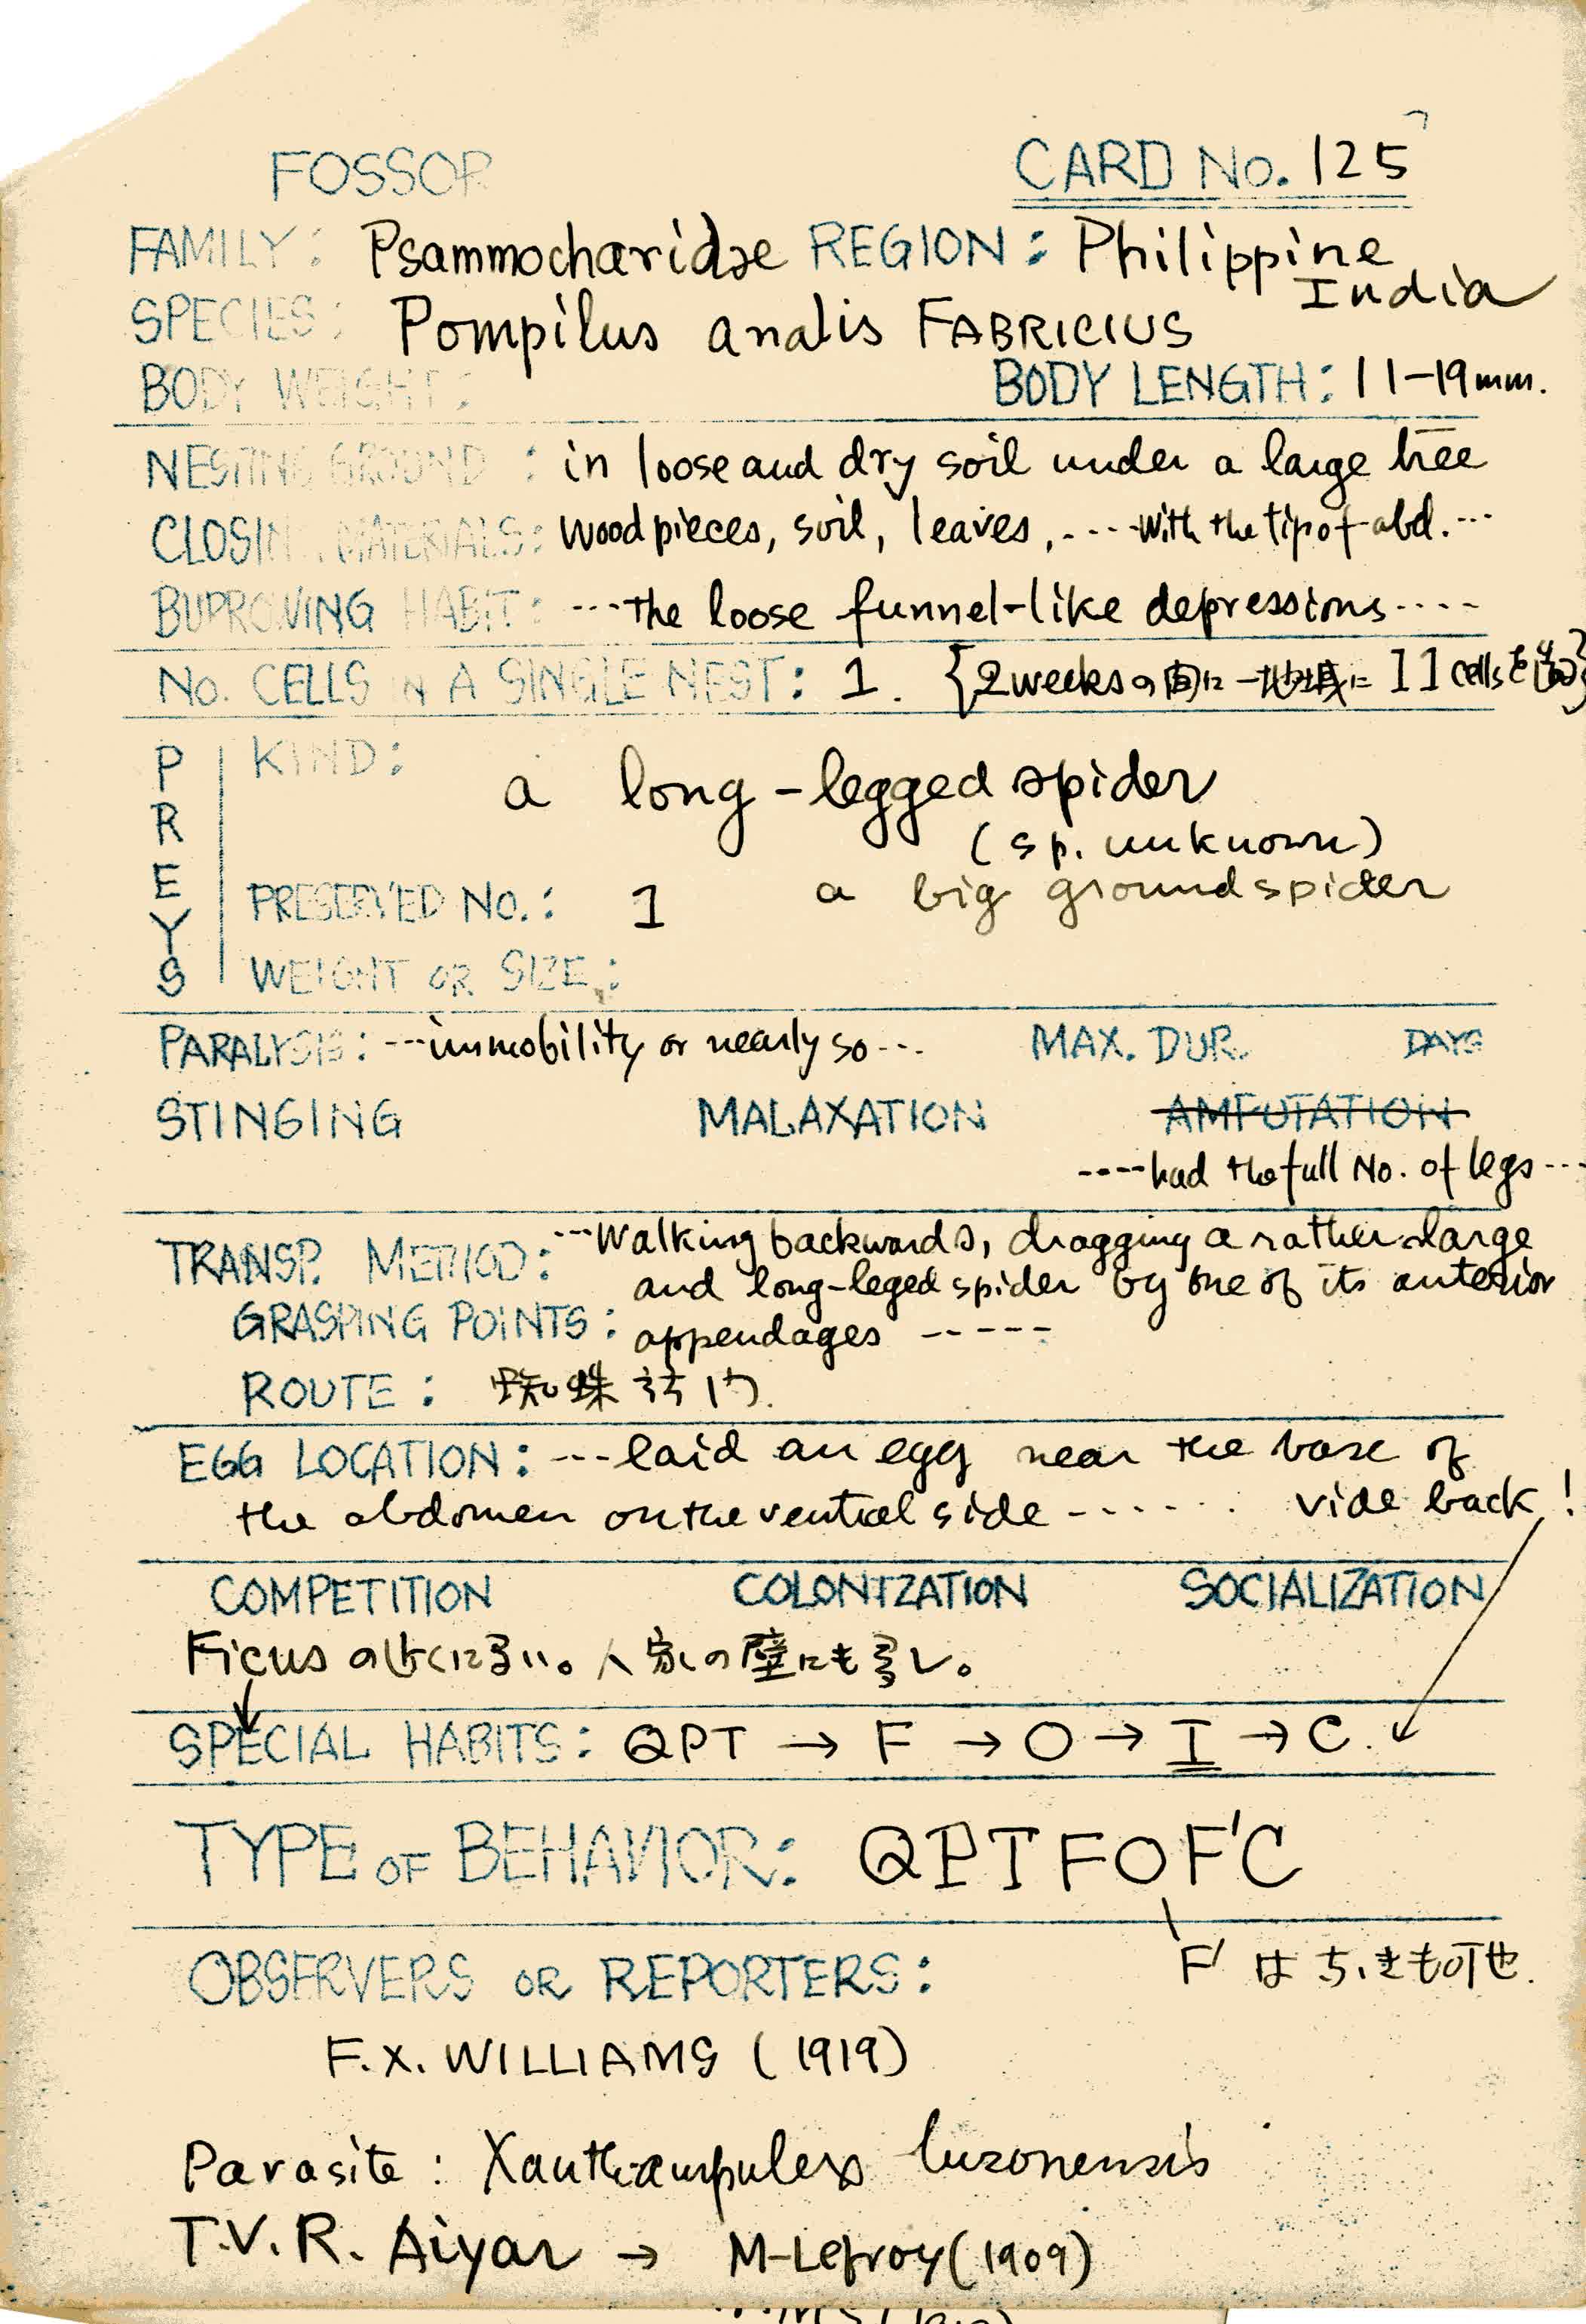 FOSSOR CARD No. 125
FAMILY: Psammocharidae REGION: Philippine
India
SPECIES: Pompilus analis FABRICIUS
BODY WEIGHT: BODY LENGTH: 11-19mm.
NESTING GROUND: in loose and dry soil under a large tree
CLOSING MATERIALS: wood pieces, soil, leaves, .... with the tip of abd. ...
BURROWING HABIT: ... the loose funnel-like depressions ....
No. CELLS IN A SINGLE NEST: 1. {2 weeksの間に一地域に 11 cellsを}
PREYS
KIND: a long-legged spider
(sp. unknown)
a big ground spider
PRESERVED No.: 1
WEIGHT OR SIZE:
PARALYSIS: ... immobility or nearly so ... MAX. DUR. DAYS
STINGING MALAXATION AMPUTATION
.... had the full No. of legs ...
TRANSP. METHOD: ... Walking backwards, dragging a rather large
and long-leged spider by one of its anterior
GRASPING POINTS: appendages -----
ROUTE: 蜘蛛
EGG LOCATION: ... laid an egg near the base of
the abdomen on the ventral side ...... vide back!
COMPETITION COLONIZATION SOCIALIZATION
Ficus の近くに多い。人家の壁にも多し。
SPECIAL HABITS: QPT → F → O → I → C.
TYPE OF BEHAVIOR: QPTFOF'C
OBSERVERS OR REPORTERS: F' は も可也.
F.X. WILLIAMS (1919)
Parasite: Xanthampulex luzonensis
T.V.R. Aiyar → M-Lefroy (1909)